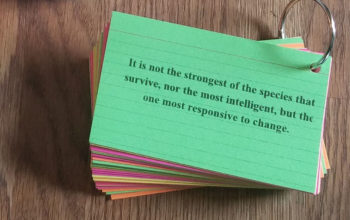 It is not the strongest of the species that
survive, nor the most intelligent, but the
one most responsive to change.